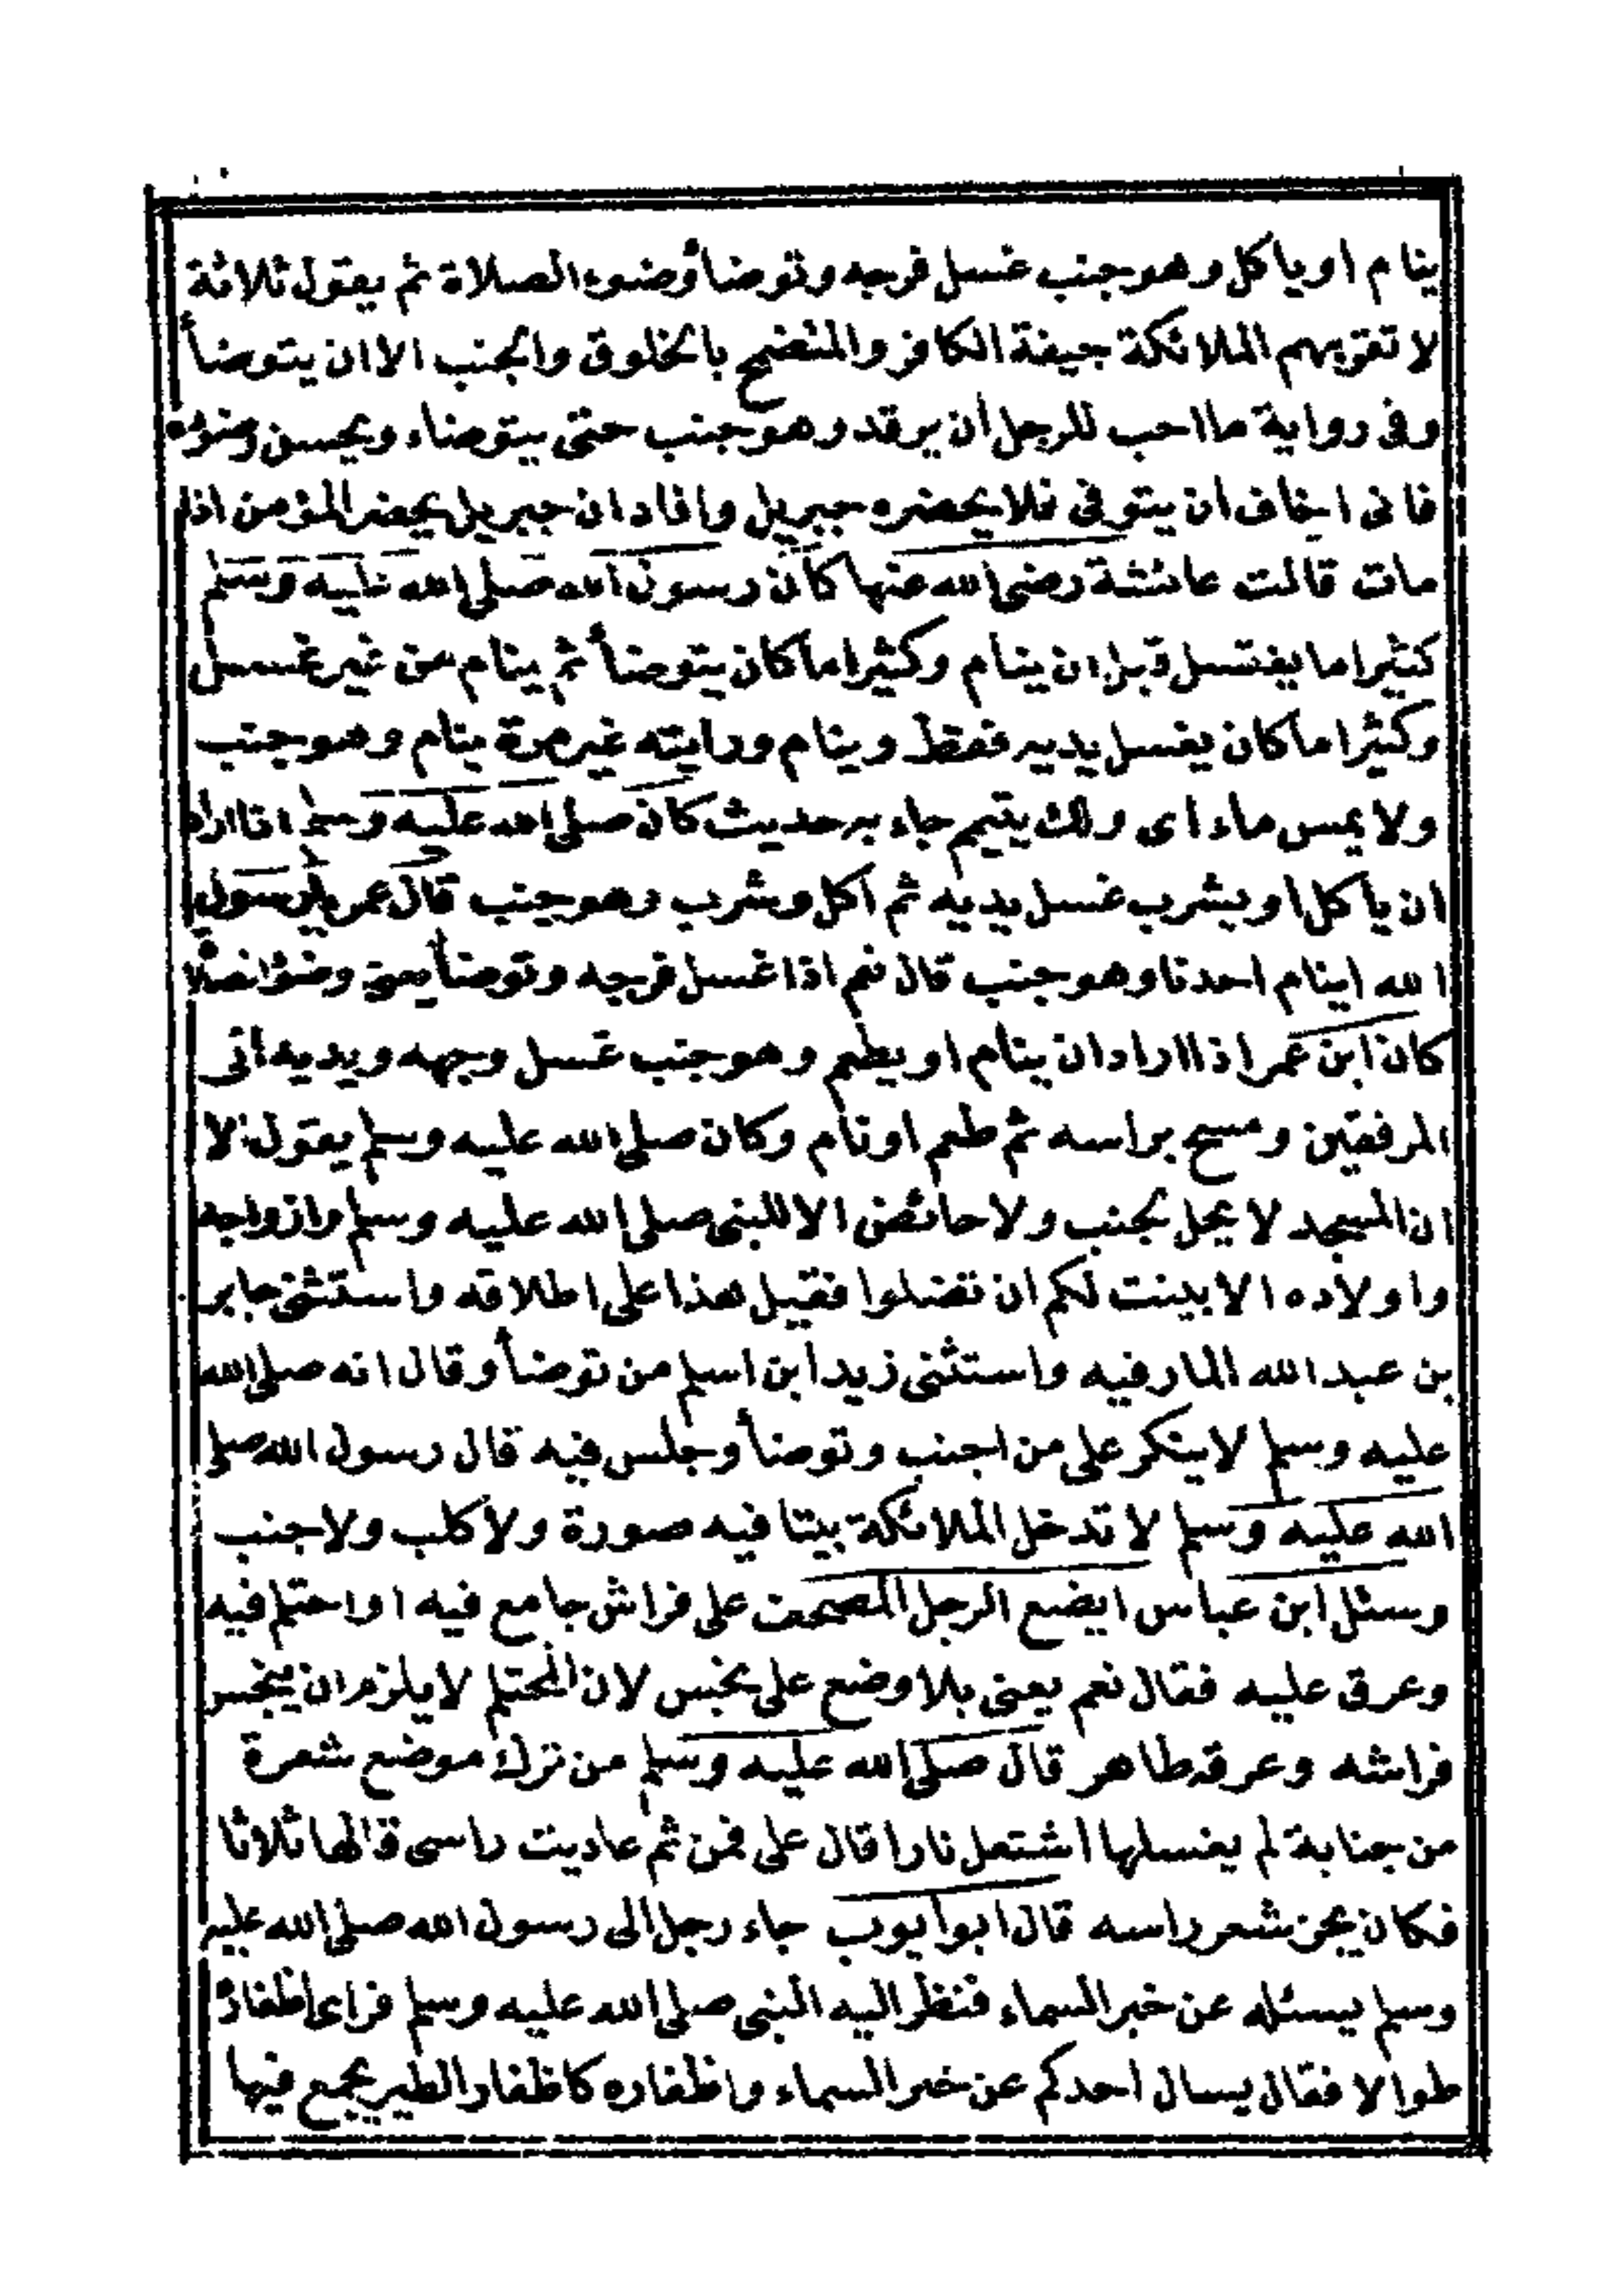 ينام او ياكل وهو جنب غسل فرجه وتوضأ وضوء الصلاة ثم يقول ثلاثة
لا تقربهم الملائكة جيفة الكافر والمتضمخ بالخلوق والجنب الا ان يتوضأ
وفى رواية ما احب للرجل أن يرقد وهو جنب حتى يتوضاء ويحسن وضوئه
فانى اخاف ان يتوفى فلا يحضره جبريل وافاد ان جبريل يحضر المؤمن اذا
مات قالت عائشة رضى الله عنها كان رسول الله صلى الله عليه وسلم
كثيرا ما يغتسل قبل ان ينام وكثيرا ما كان يتوضأ ثم ينام من غير غسل
وكثيرا ما كان يغسل يديه فقط وينام ورايته غير مرة ينام وهو جنب
ولا يمس ماء اى ولك يتيم جاء به حديث كان صلى الله عليه وسلم اذا اراد
ان ياكل او يشرب غسل يديه ثم اكل وشرب وهو جنب قال عمر يا رسول
الله اينام احدنا وهو جنب قال نعم اذا غسل فرجه وتوضأ يعنى وضؤ الصلا
كان ابن عمر اذا اراد ان ينام او يطعم وهو جنب غسل وجهه ويديه الى
المرفقين ومسح براسه ثم طعم او نام وكان صلى الله عليه وسلم يقول الا
ان المسجد لا يحل لجنب ولا حائض الا للنبى صلى الله عليه وسلم وازواجه
واولاده الا بينت لكم ان تضلوا فقيل هذا على اطلاقه واستثنى جابر
بن عبد الله المار فيه واستثنى زيد ابن اسلم من توضأ وقال انه صلى الله
عليه وسلم لا ينكر على من اجنب وتوضأ وجلس فيه قال رسول الله صلى
الله عليه وسلم لا تدخل الملائكة بيتا فيه صورة ولا كلب ولا جنب
وسئل ابن عباس ايضع الرجل المصحف على فراش جامع فيه او احتلم فيه
وعرق عليه فقال نعم يعنى بلا وضع على نجس لان المحتلم لا يلزم ان ينجس
فراشه وعرقه طاهر قال صلى الله عليه وسلم من ترك موضع شعرة
من جنابة لم يغسلها اشتعل نارا قال على فمن ثم عاديت راسى قالها ثلاثا
فكان يجز شعر راسه قال ابو ايوب جاء رجل الى رسول الله صلى الله عليه
وسلم يسئله عن خبر السماء فنظر اليه النبى صلى الله عليه وسلم فراى اظفاره
طوالا فقال يسال احدكم عن خبر السماء واظفاره كاظفار الطير يجمع فيها